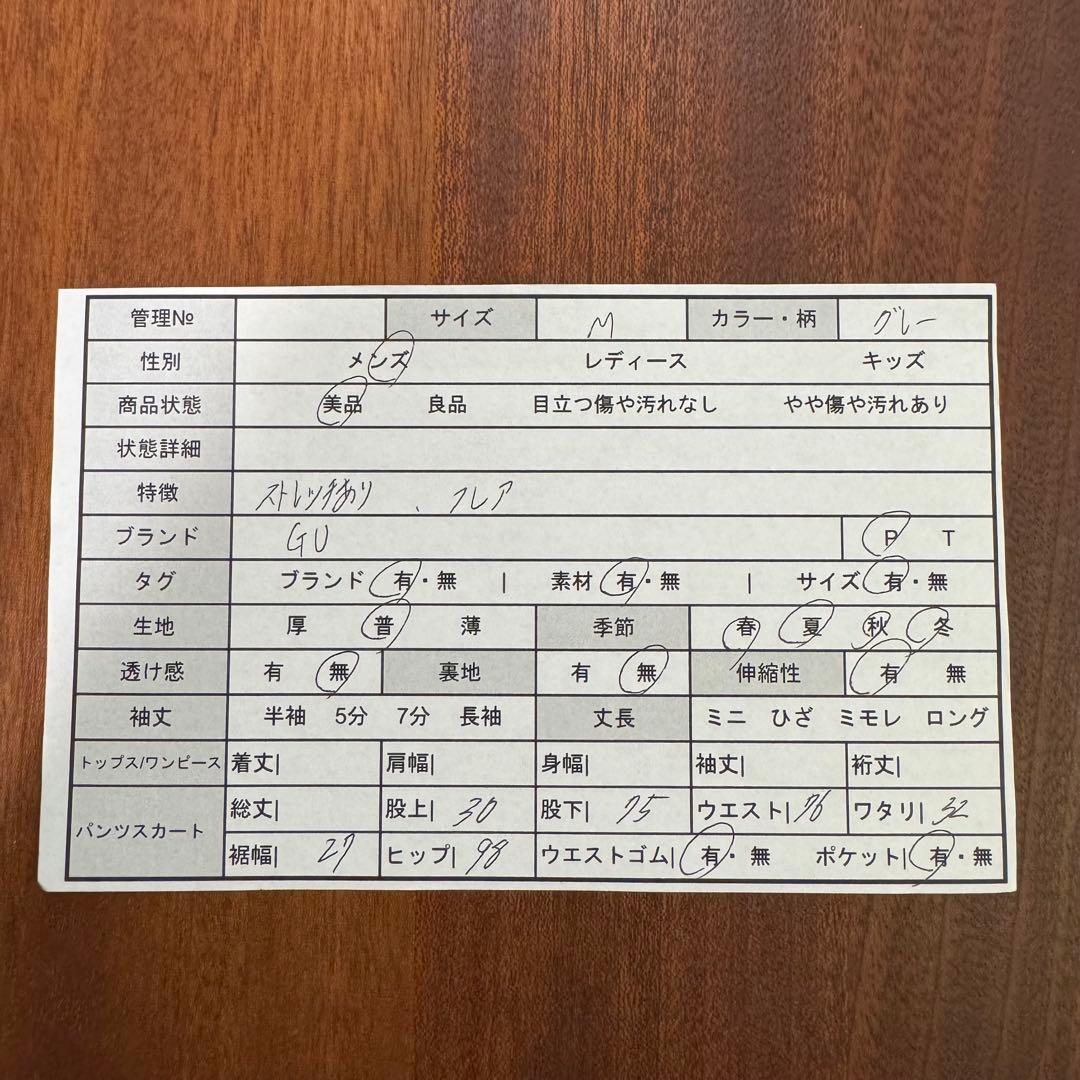 管理№ サイズ M カラー・柄 グレー
性別 メンズ レディース キッズ
商品状態 美品 良品 目立つ傷や汚れなし やや傷や汚れあり
状態詳細
特徴 ストレッチあり、フレア
ブランド GU P T
タグ ブランド 有・無 | 素材 有・無 | サイズ 有・無
生地 厚 普 薄 季節 春 夏 秋 冬
透け感 有 無 裏地 有 無 伸縮性 有 無
袖丈 半袖 5分 7分 長袖 丈長 ミニ ひざ ミモレ ロング
トップス/ワンピース 着丈| 肩幅| 身幅| 袖丈| 裄丈|
パンツスカート 総丈| 股上| 30 股下| 75 ウエスト| 76 ワタリ| 32
裾幅| 27 ヒップ| 98 ウエストゴム| 有・無 ポケット| 有・無